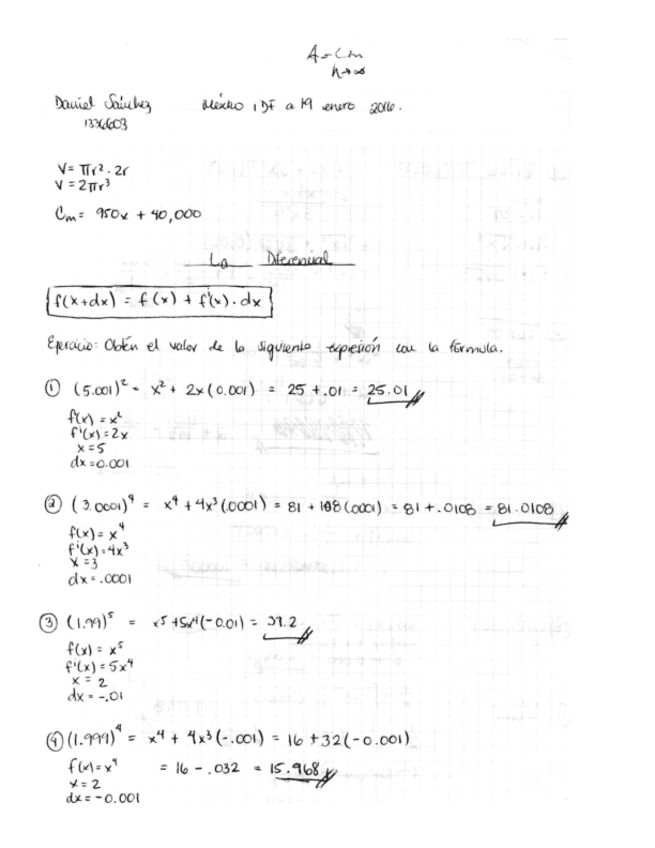 A = Cm
n→∞
Daniel Sánchez México, DF a 19 enero 2016.
1336603
V = πr² · 2r
V = 2πr³
Cm = 950x + 40,000
La Diferencial
f(x+dx) = f(x) + f'(x) · dx
Ejercicio: Obtén el valor de la siguiente expresión con la fórmula.
① (5.001)² = x² + 2x(0.001) = 25 + .01 = 25.01
f(x) = x²
f'(x) = 2x
x = 5
dx = 0.001
② (3.0001)⁴ = x⁴ + 4x³(.0001) = 81 + 108(.0001) = 81 + .0108 = 81.0108
f(x) = x⁴
f'(x) = 4x³
x = 3
dx = .0001
③ (1.99)⁵ = x⁵ + 5x⁴(-0.01) = 39.2
f(x) = x⁵
f'(x) = 5x⁴
x = 2
dx = -.01
④ (1.999)⁴ = x⁴ + 4x³(-.001) = 16 + 32(-0.001)
f(x) = x⁴ = 16 - .032 = 15.968
x = 2
dx = -0.001